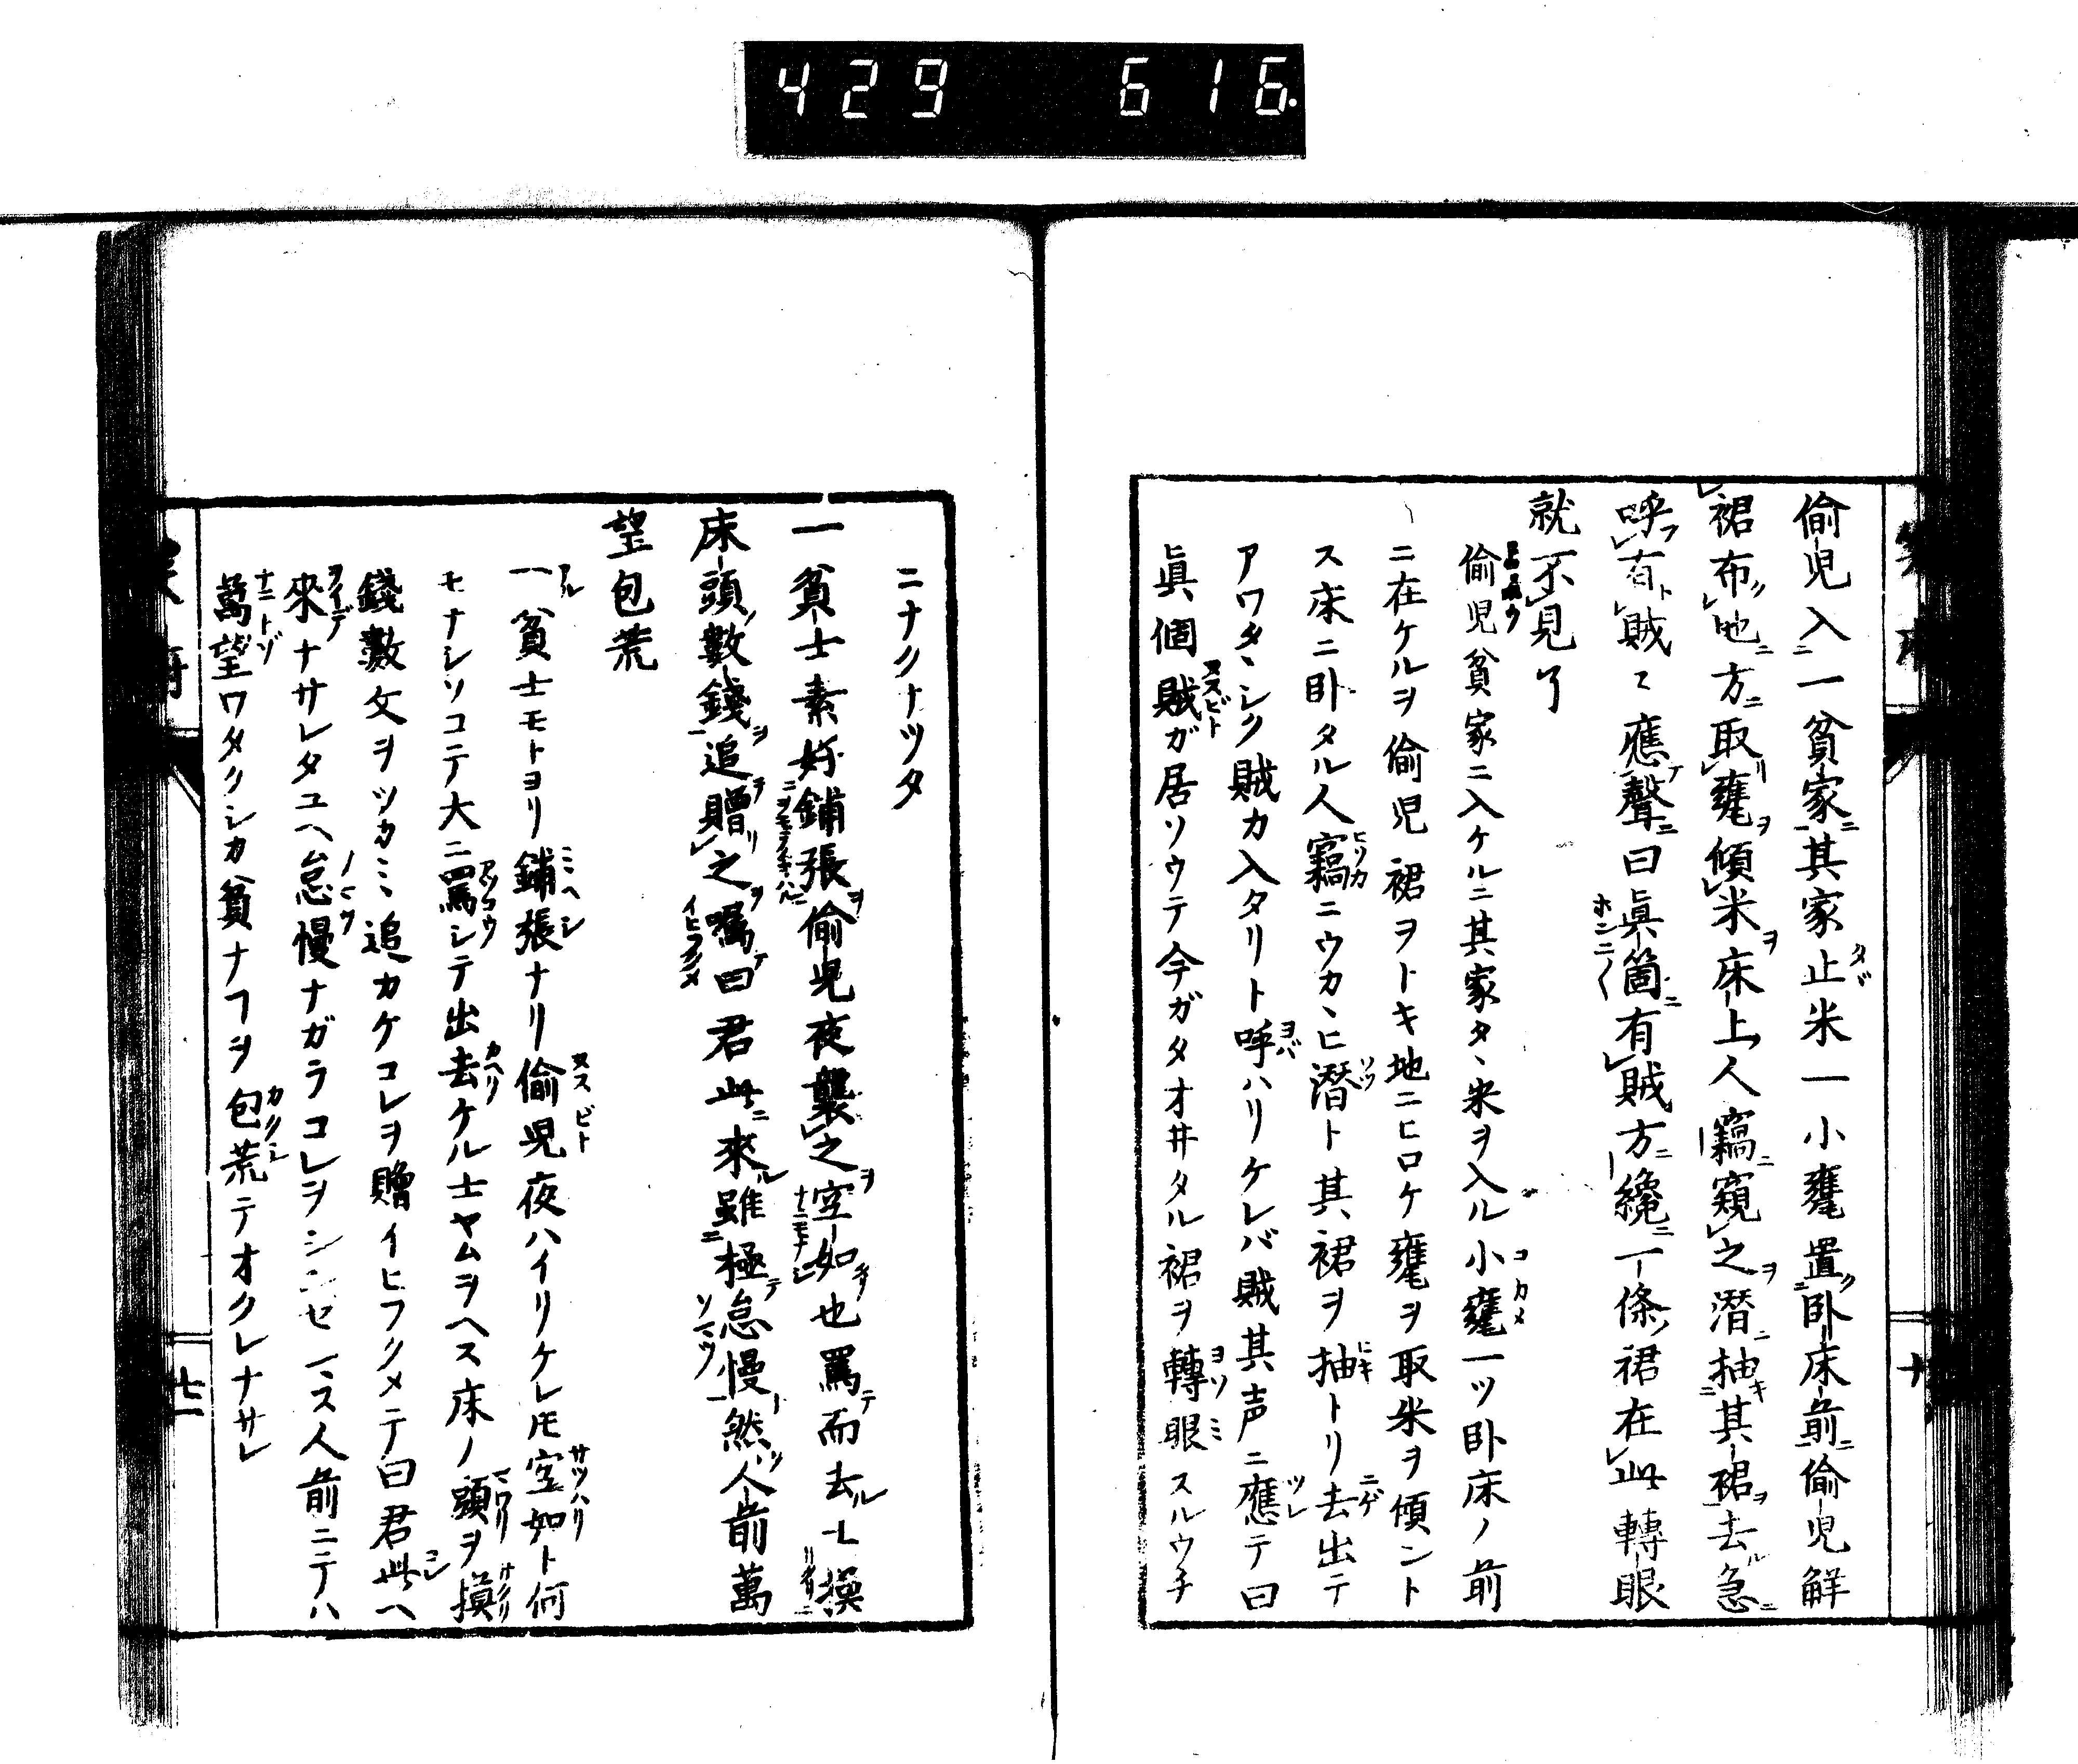 429 616.
偷児入一貧家其家止米一小甕置卧床前偷児解
裙布地方取甕傾米床上人竊窺之潜抽其裙去急
呼有賊〻應聲曰眞箇有賊方纔一條裙在此轉眼
就不見了
偷児貧家ニ入ケルニ其家タヽ米ヲ入ル小甕一ツ卧床ノ前
ニ在ケルヲ偷児裙ヲトキ地ニヒロケ甕ヲ取米ヲ傾ント
ス床ニ卧タル人竊ニウカヽヒ潜ト其裙ヲ抽トリ去出テ
アワタヽシク賊カ入タリト呼ハリケレバ賊其声ニ應テ曰
眞個賊ガ居ソウテ今ガタオ井タル裙ヲ轉眼スルウチ
十
ニナクナツタ
一貧士素好鋪張偷児夜襲之空如也罵而去士摸
床頭數錢追贈之嘱曰君此來雖極怠慢然人前萬
望包荒
一貧士モトヨリ鋪張ナリ偷児夜ハイリケレ𪜈空如ト何
モナシソコテ大ニ罵シテ出去ケル士ヤムヲヘス床ノ頭ヲ摸
錢數文ヲツカミ追カケコレヲ贈イヒフクメテ曰君此ヘ
來ナサレタユヘ怠慢ナガラコレヲシンセマス人前ニテハ
萬望ワタクシカ貧ナヿヲ包荒テオクレナサレ